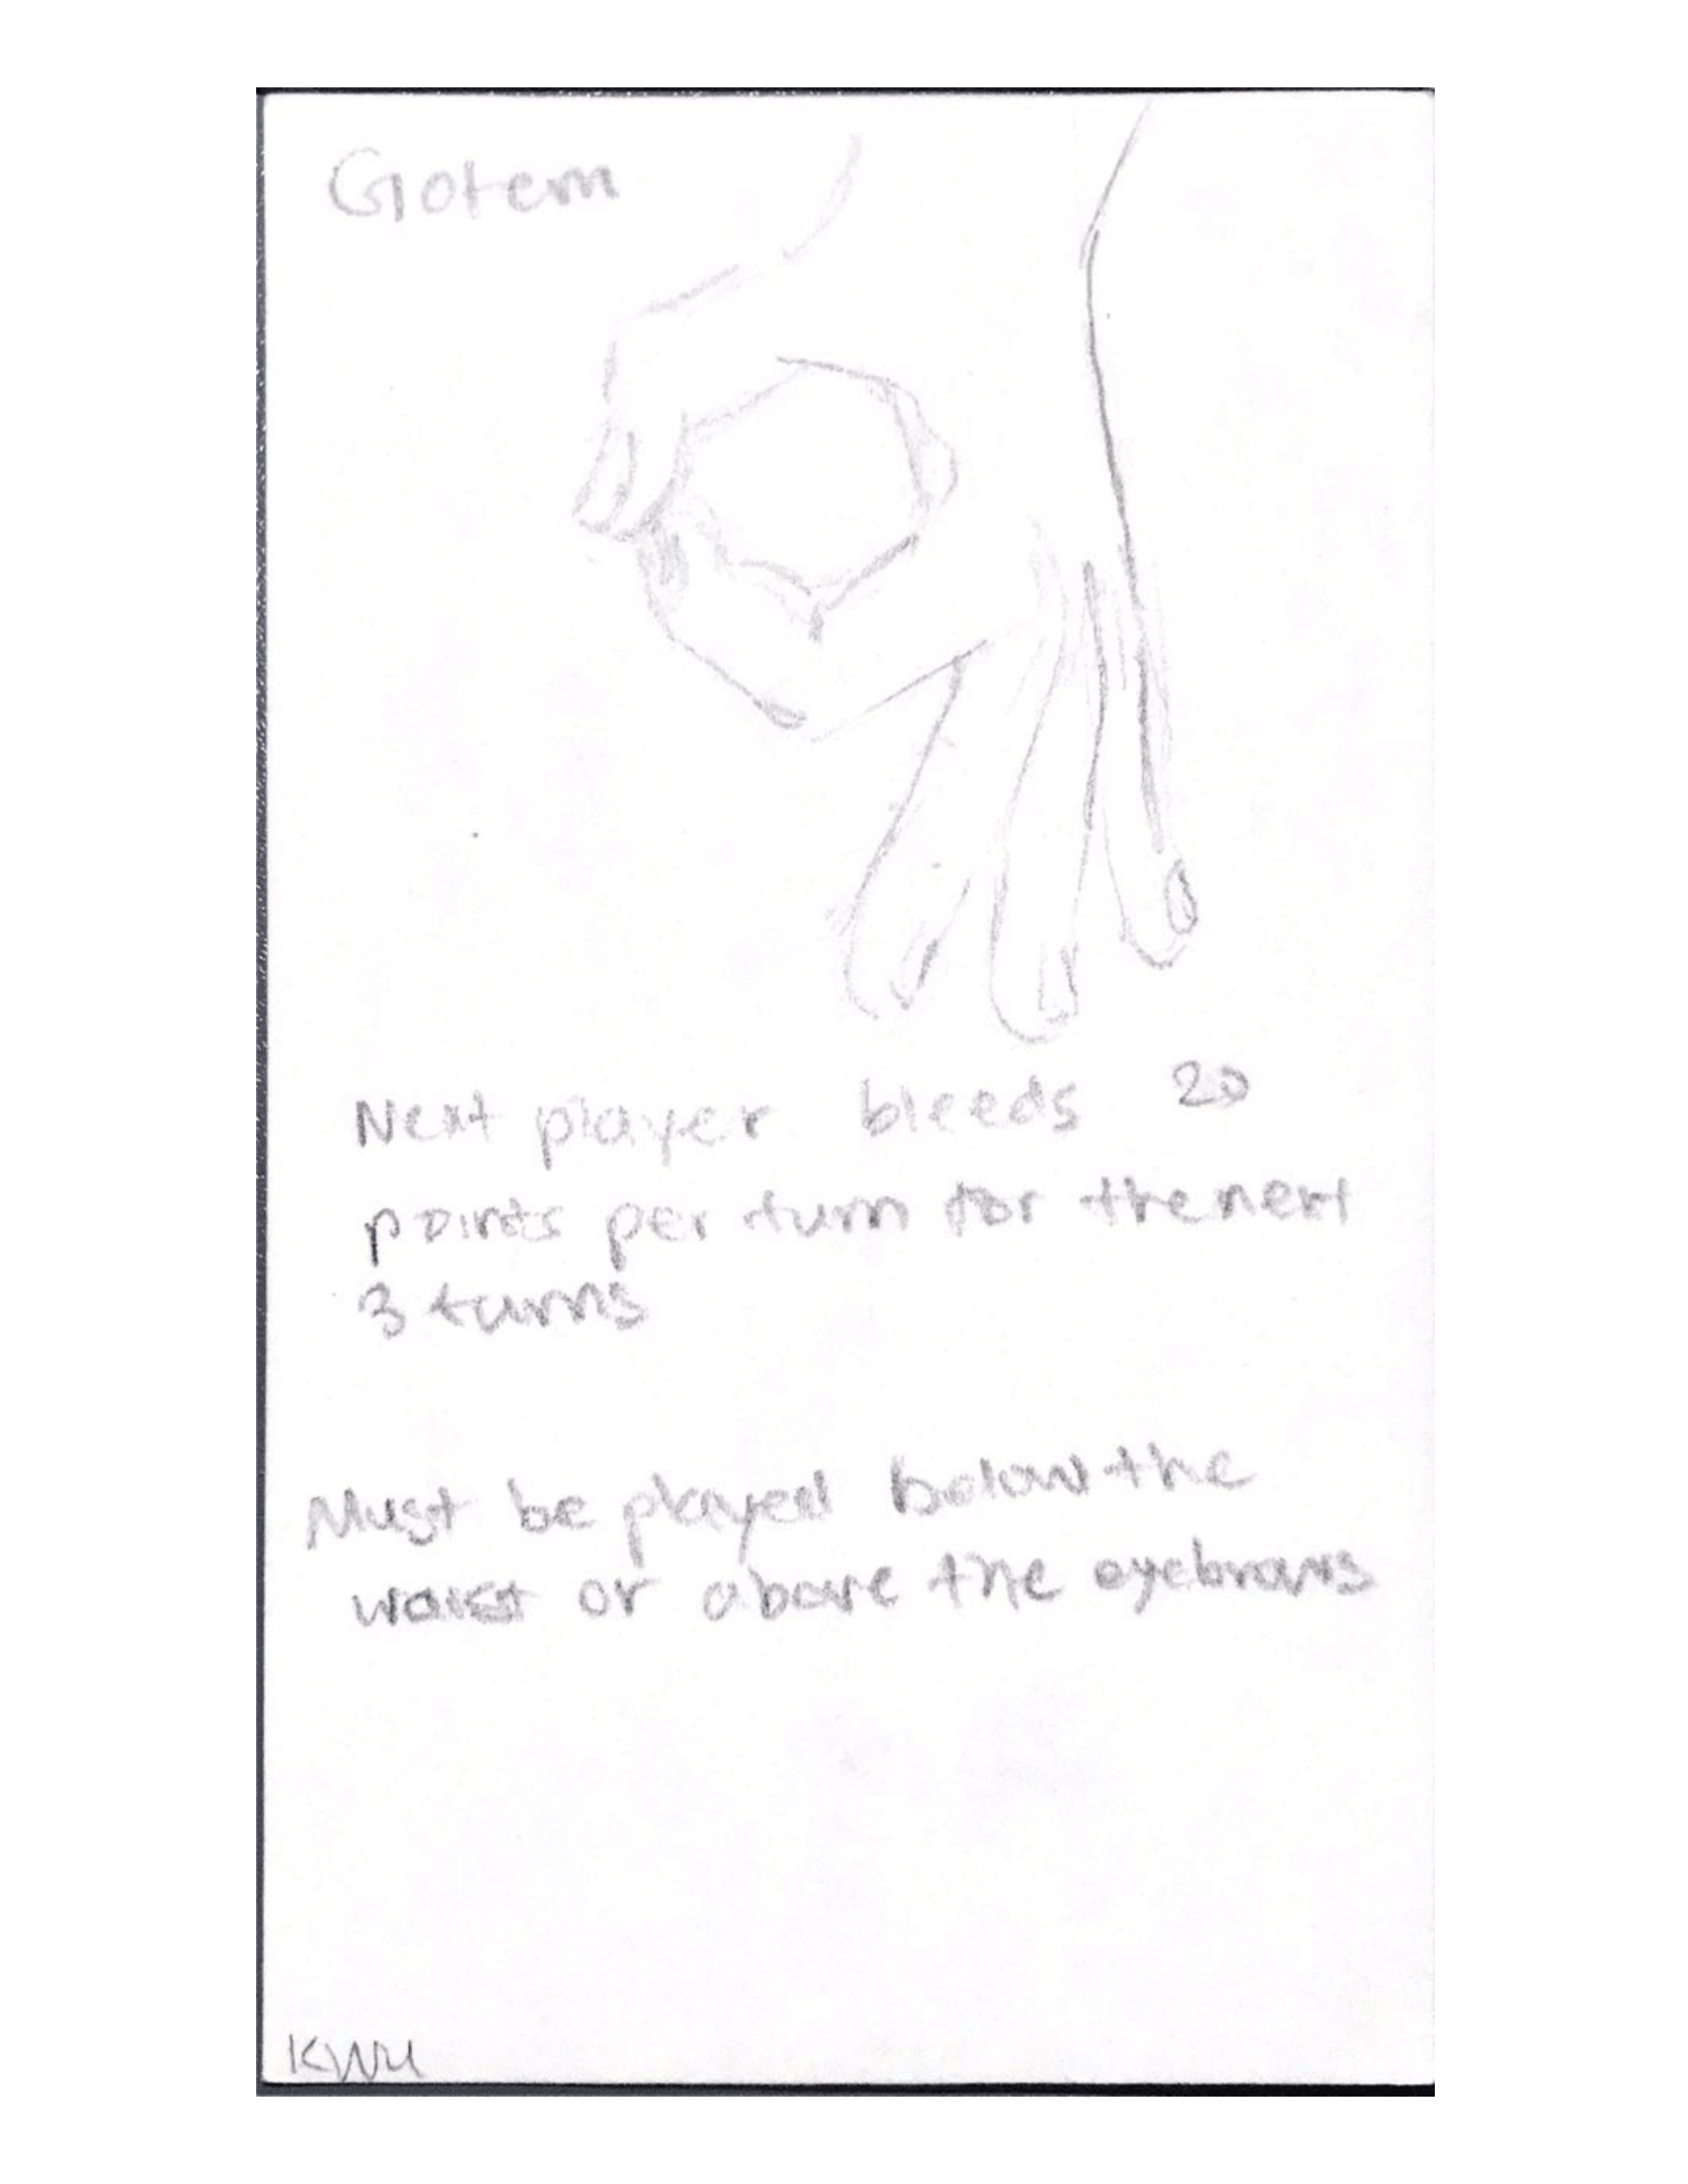 Gotem
Next player bleeds 20
points per turn for the next
3 turns
Must be played below the
waist or above the eyebrows
KWu